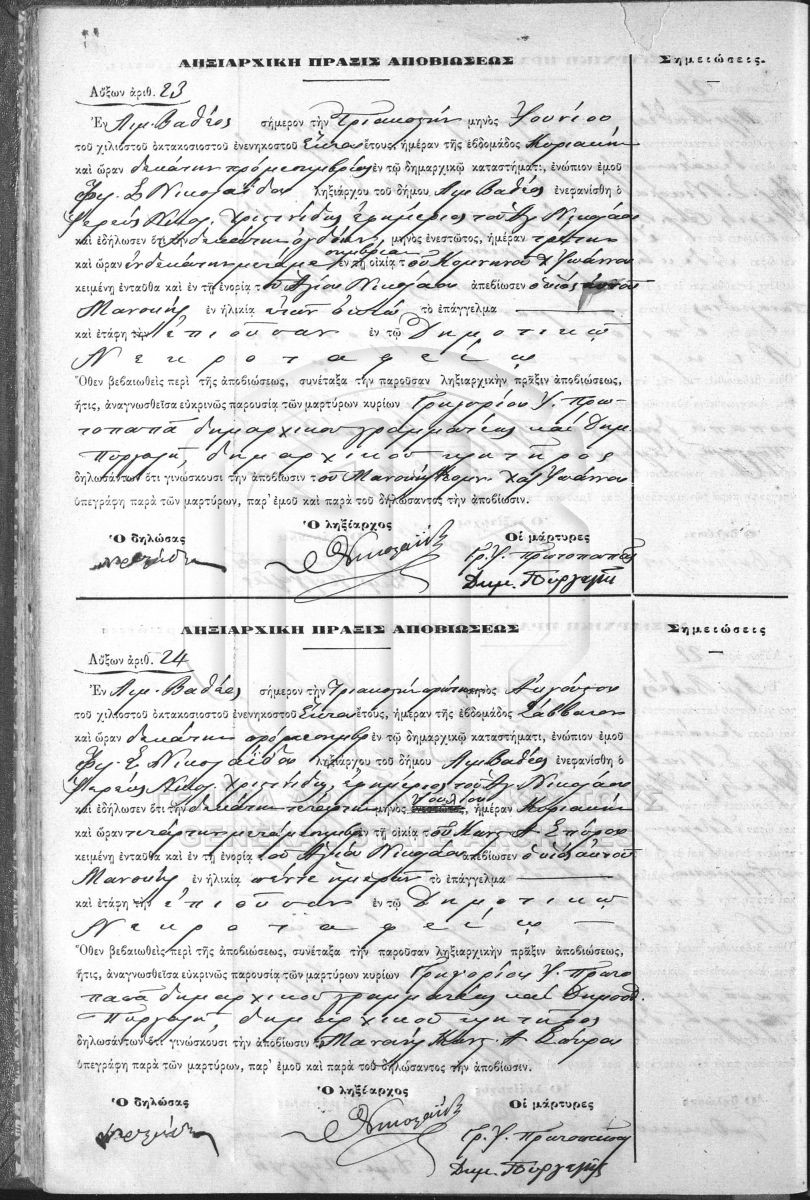 ΛΗΞΙΑΡΧΙΚΗ ΠΡΑΞΙΣ ΑΠΟΒΙΩΣΕΩΣ
Σημειώσεις.
Αὔξων ἀριθ. 23
Ἐν Λιμ. Βαθέος σήμερον τὴν Τριακοστὴν μηνὸς Ἰουνίου
τοῦ χιλιοστοῦ ὀκτακοσιοστοῦ ἐνενηκοστοῦ Ἕκτου ἔτους, ἡμέραν τῆς ἑβδομάδος Κυριακὴν
καὶ ὥραν δεκάτην πρὸ μεσημβρίας ἐν τῷ δημαρχικῷ καταστήματι, ἐνώπιον ἐμοῦ
Νικολαΐδου ληξιάρχου τοῦ δήμου Λιμ. Βαθέος ἐνεφανίσθη ὁ
Ἱερεὺς Νικόλ. Χριστινίδης ἐφημέριος τοῦ Ἁγ. Νικολάου
καὶ ἐδήλωσεν ὅτι τὴν δεκάτην ὀγδόην μηνὸς ἐνεστῶτος, ἡμέραν τρίτην
καὶ ὥραν ἑνδεκάτην μετὰ μεσημβρίαν ἐν τῇ οἰκίᾳ τοῦ Κομνηνοῦ Χ" Ἰωάννου
κειμένῃ ἐνταῦθα καὶ ἐν τῇ ἐνορίᾳ τοῦ Ἁγίου Νικολάου ἀπεβίωσεν ὁ υἱὸς αὐτοῦ
Μανουὴλ ἐν ἡλικίᾳ ἐτῶν ὀκτὼ τὸ ἐπάγγελμα
καὶ ἐτάφη τὴν ἐπιοῦσαν ἐν τῷ Δημοτικῷ
Νεκροταφείῳ
Ὅθεν βεβαιωθεὶς περὶ τῆς ἀποβιώσεως, συνέταξα τὴν παροῦσαν ληξιαρχικὴν πρᾶξιν ἀποβιώσεως,
ἥτις, ἀναγνωσθεῖσα εὐκρινῶς παρουσίᾳ τῶν μαρτύρων κυρίων Γρηγορίου Ψ. Πρω-
τοπαπᾶ δημαρχικοῦ γραμματέως καὶ Δημ.
δημαρχικοῦ κλητῆρος
δηλωσάντων ὅτι γινώσκουσι τὴν ἀποβίωσιν τοῦ Μανουὴλ Κομν. Χατζ Ἰωάννου
ὑπεγράφη παρὰ τῶν μαρτύρων, παρ' ἐμοῦ καὶ παρὰ τοῦ δηλώσαντος τὴν ἀποβίωσιν.
Ὁ δηλώσας
Ὁ ληξίαρχος
Οἱ μάρτυρες
Νικολαΐδης
Γρ. Ψ. Πρωτοπαπᾶς
Δημ.
ΛΗΞΙΑΡΧΙΚΗ ΠΡΑΞΙΣ ΑΠΟΒΙΩΣΕΩΣ
Σημειώσεις
Αὔξων ἀριθ. 24
Ἐν Λιμ. Βαθέος σήμερον τὴν Τριακοστὴν πρώτην μηνὸς Αὐγούστου
τοῦ χιλιοστοῦ ὀκτακοσιοστοῦ ἐνενηκοστοῦ Ἕκτου ἔτους, ἡμέραν τῆς ἑβδομάδος Σάββατον
καὶ ὥραν δεκάτην πρὸ μεσημβρ. ἐν τῷ δημαρχικῷ καταστήματι, ἐνώπιον ἐμοῦ
Νικολαΐδου ληξιάρχου τοῦ δήμου Λιμ. Βαθέος ἐνεφανίσθη ὁ
Ἱερεὺς Νικόλ. Χριστινίδης ἐφημέριος τοῦ Ἁγ. Νικολάου
καὶ ἐδήλωσεν ὅτι τὴν δεκάτην τετάρτην μηνὸς Ἰουλίου, ἡμέραν Κυριακὴν
καὶ ὥραν τετάρτην μετὰ μεσημβρ. ἐν τῇ οἰκίᾳ τοῦ Κωνσ. Α. Σπύρου
κειμένῃ ἐνταῦθα καὶ ἐν τῇ ἐνορίᾳ τοῦ Ἁγίου Νικολάου ἀπεβίωσεν ὁ υἱὸς αὐτοῦ
Μανουὴλ ἐν ἡλικίᾳ πέντε ἡμερῶν τὸ ἐπάγγελμα
καὶ ἐτάφη τὴν ἐπιοῦσαν ἐν τῷ Δημοτικῷ
Νεκροταφείῳ
Ὅθεν βεβαιωθεὶς περὶ τῆς ἀποβιώσεως, συνέταξα τὴν παροῦσαν ληξιαρχικὴν πρᾶξιν ἀποβιώσεως,
ἥτις, ἀναγνωσθεῖσα εὐκρινῶς παρουσίᾳ τῶν μαρτύρων κυρίων Γρηγορίου Ψ. Πρωτο
παπᾶ δημαρχικοῦ γραμματέως καὶ
δημαρχικοῦ κλητῆρος
δηλωσάντων ὅτι γινώσκουσι τὴν ἀποβίωσιν τοῦ Μανουὴλ Κωνσ. Α. Σπύρου
ὑπεγράφη παρὰ τῶν μαρτύρων, παρ' ἐμοῦ καὶ παρὰ τοῦ δηλώσαντος τὴν ἀποβίωσιν.
Ὁ δηλώσας
Ὁ ληξίαρχος
Οἱ μάρτυρες
Νικολαΐδης
Γρ. Ψ. Πρωτοπαπᾶς
Δημ.